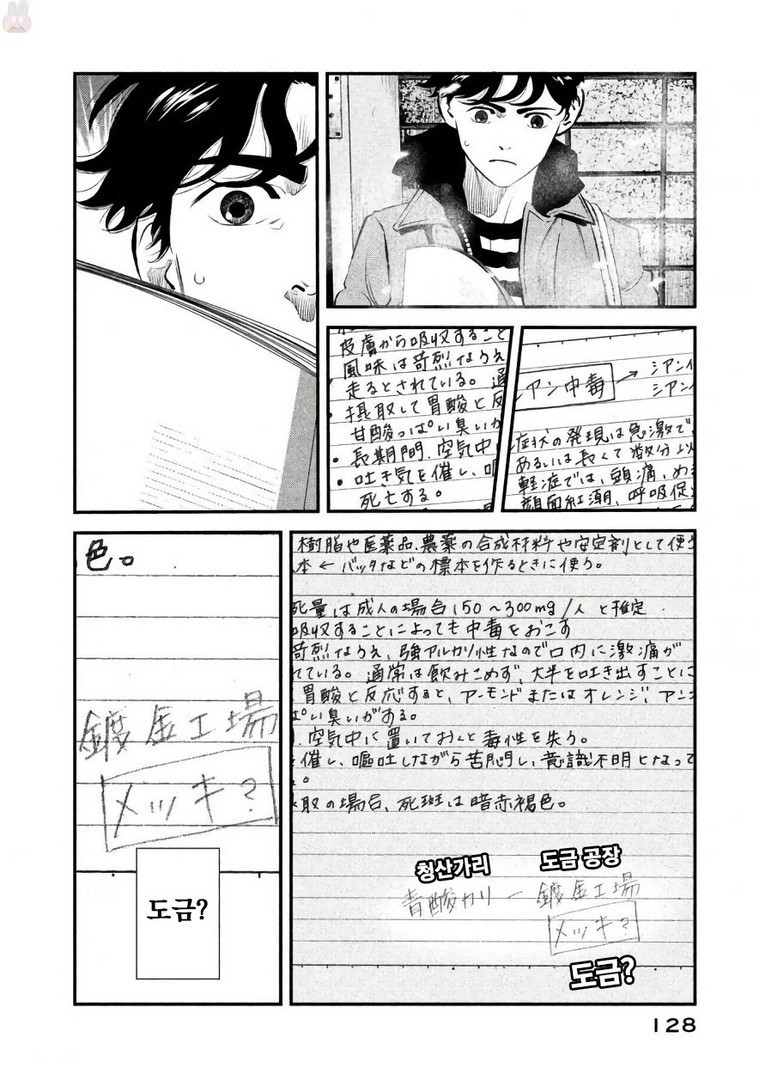 皮膚から吸収すること
風味は苛烈なうえ
走るとされている。通
・摂取して胃酸と反
甘酸っぱい臭いが
・長期間、空気中
・吐き気を催し、嘔
死亡する。
シアン中毒 → シアン
シアン
症状の発現は急激で
あるいは長くて数分以
軽症では、頭痛、め
顔面紅潮、呼吸促
色。
鍍金工場
メッキ?
도금?
樹脂や医薬品、農薬の合成材料や安定剤として使う
本 ← バッタなどの標本を作るときに使う。
死量は成人の場合150~300mg/人と推定
吸収することによっても中毒をおこす
苛烈なうえ、強アルカリ性なので口内に激痛が
れている。通常は飲みこめず、大半を吐き出すことに
胃酸と反応すると、アーモンドまたはオレンジ、アン
ぱい臭いがある。
、空気中に置いておくと毒性を失う。
催し、嘔吐しながら苦悶し、意識不明となって
。
取の場合、死斑は暗赤褐色。
청산가리 도금 공장
青酸カリ ― 鍍金工場
メッキ?
도금?
128